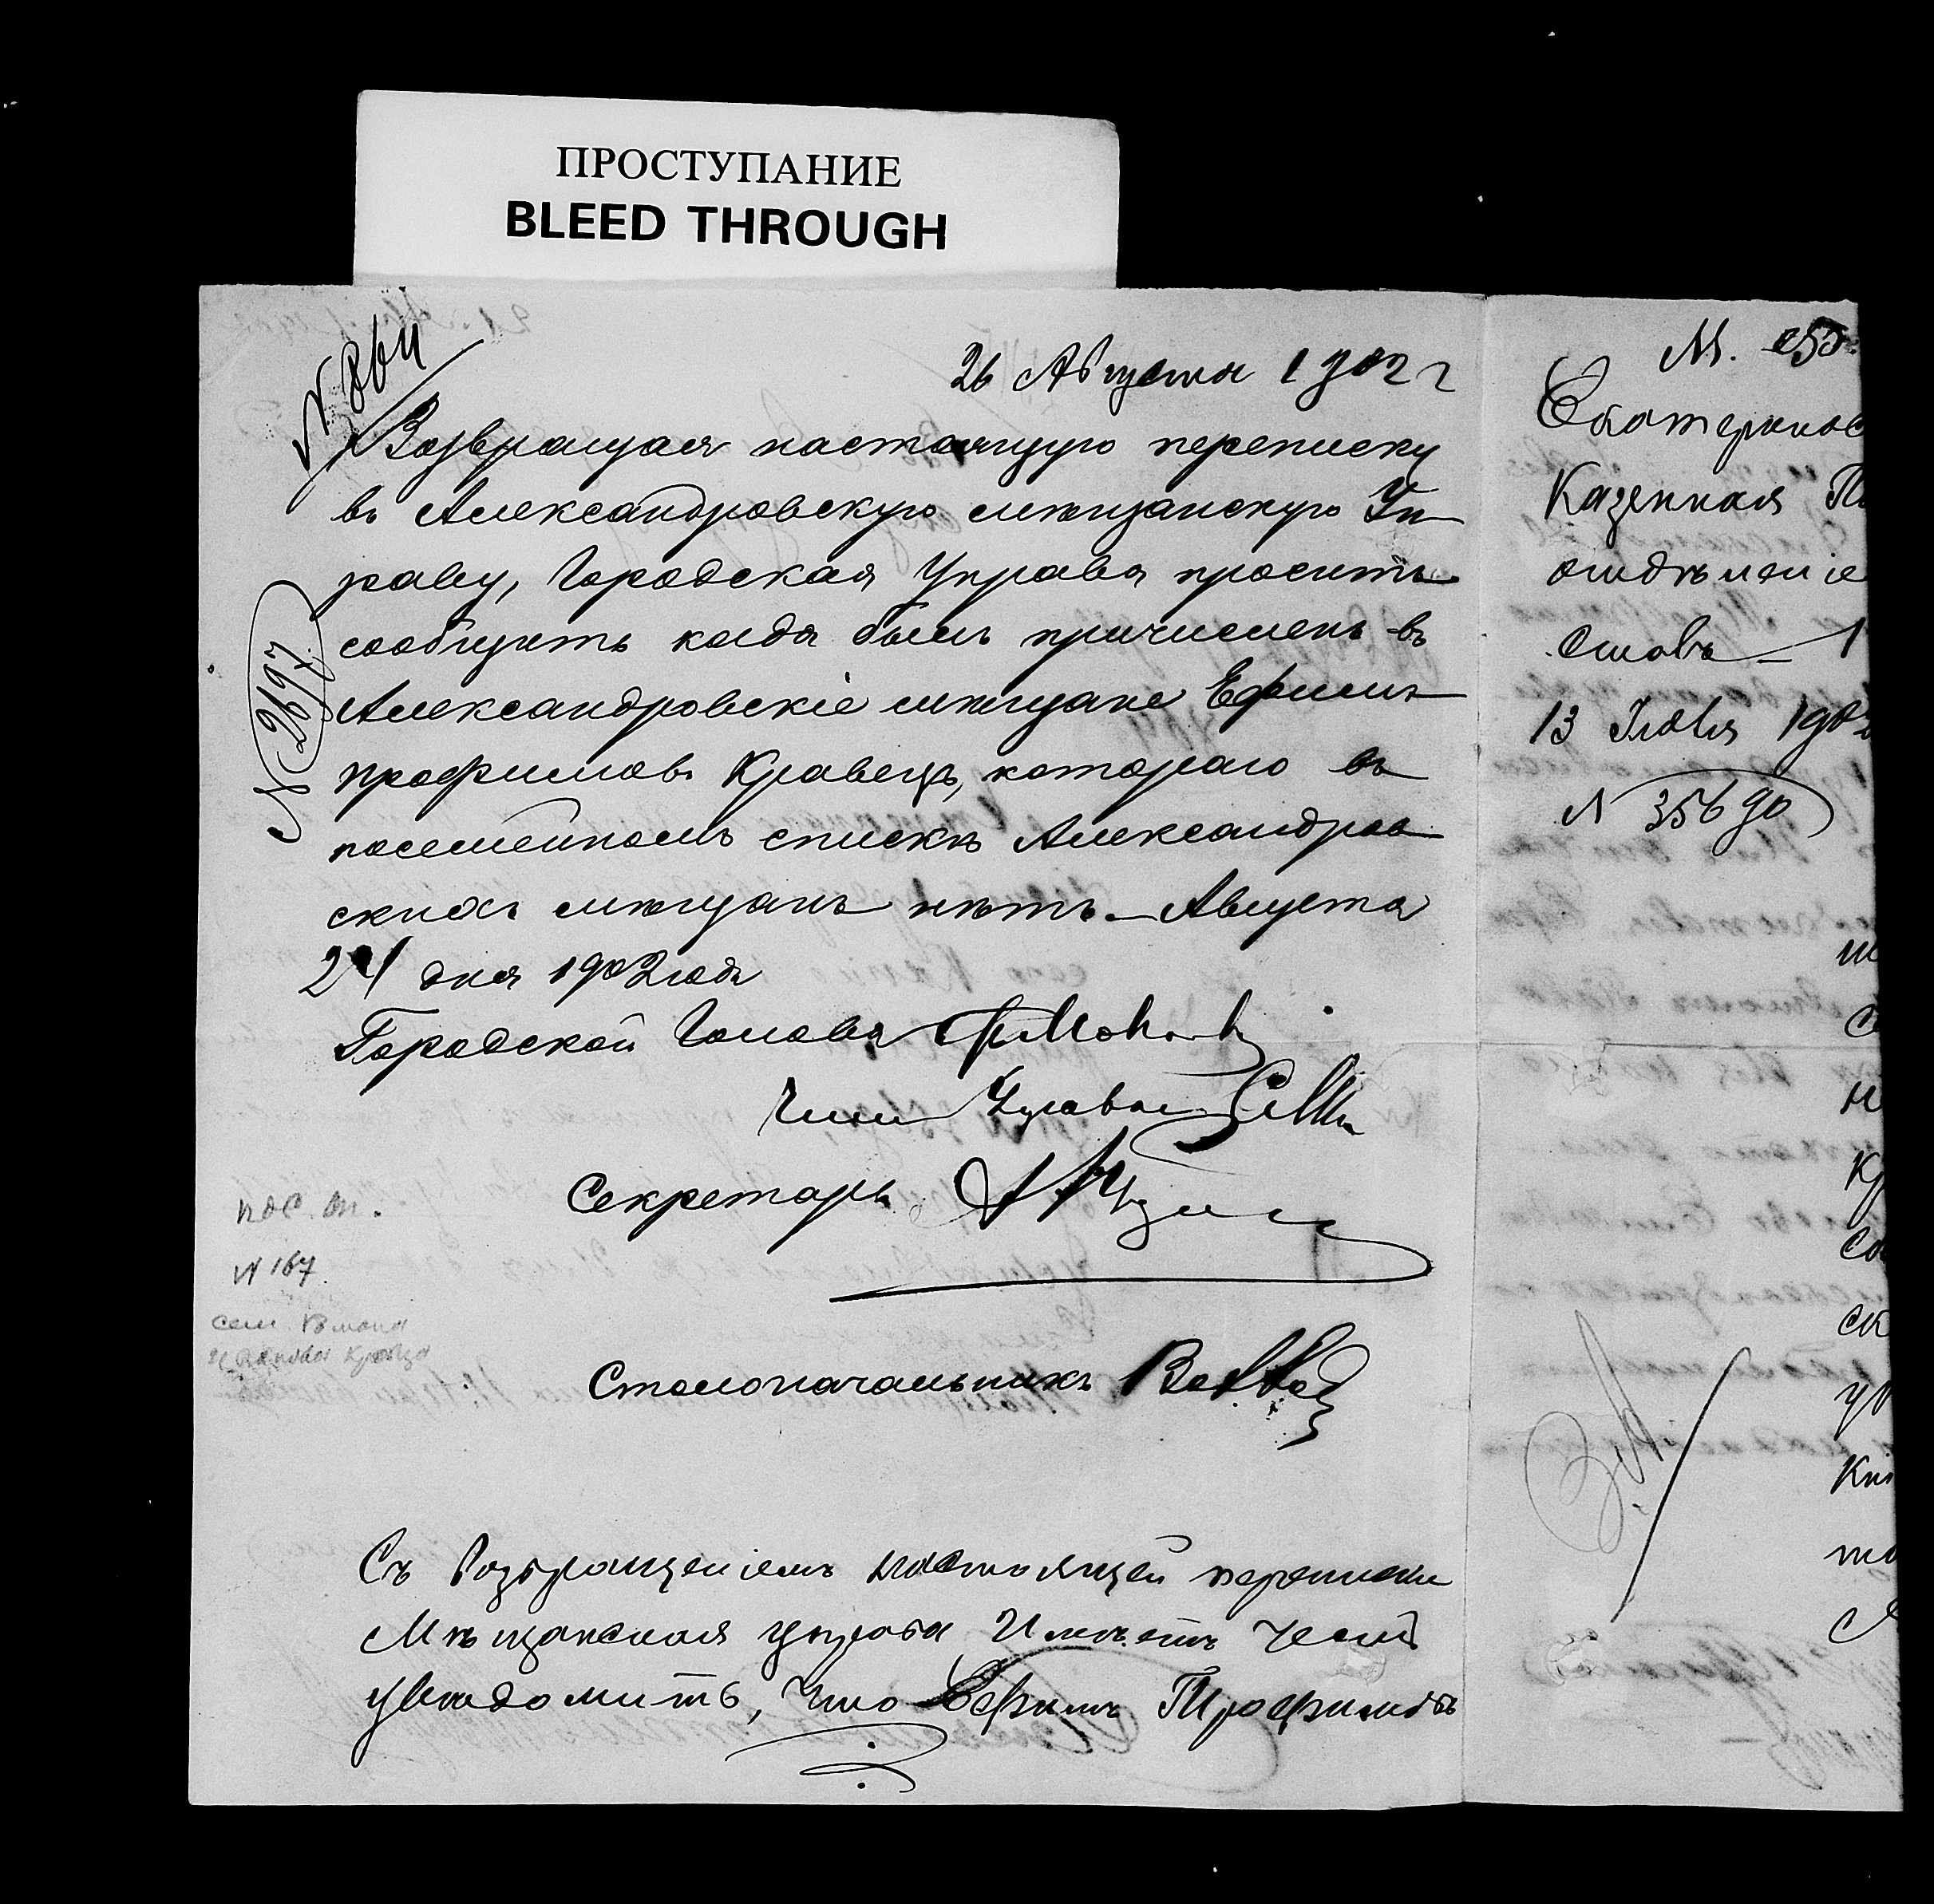 ПРОСТУПАНИЕ
BLEED THROUGH
N 864
26 Августа 1902 г
Возвращая настоящую переписку
въ Александровскую мѣщанскую Уп
раву, Городская Управа проситъ
сообщить когда былъ причисленъ въ
Александровскіе мѣщане Ефимъ
Трофимовъ Кравецъ, котораго въ
посемейномъ спискѣ Александров
скихъ мѣщанъ нѣтъ. Августа
21 дня 1902 года
N 2697
Городской Голова
Членъ Управы
Секретарь
Столоначальникъ
пос. сп.
N 167
сем.
Кравца
Съ возвращеніемъ настоящей переписки
Мѣщанская управа Имѣетъ честь
увѣдомить, что Ефимъ Трофимовъ
М.
Екатеринос
Казенная П
отдѣленіе
столъ 1
13 Іюля 190
N 35690